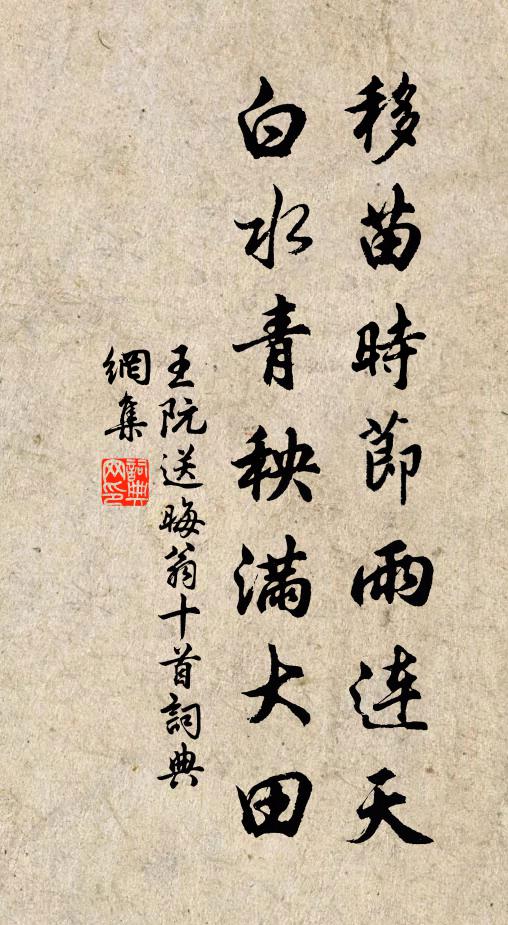 移苗時節雨連天
白水青秧滿大田
王阮送晦翁十首詞典
網集
詞典網印